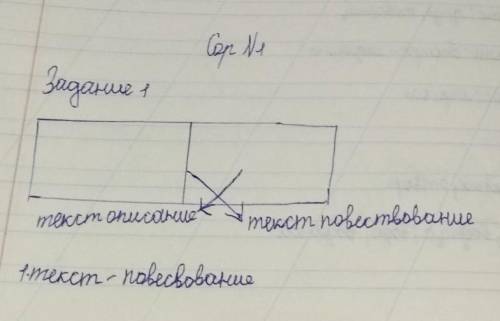 Сор №1
Задание 1
текст описание текст повествование
1. текст - повесвование